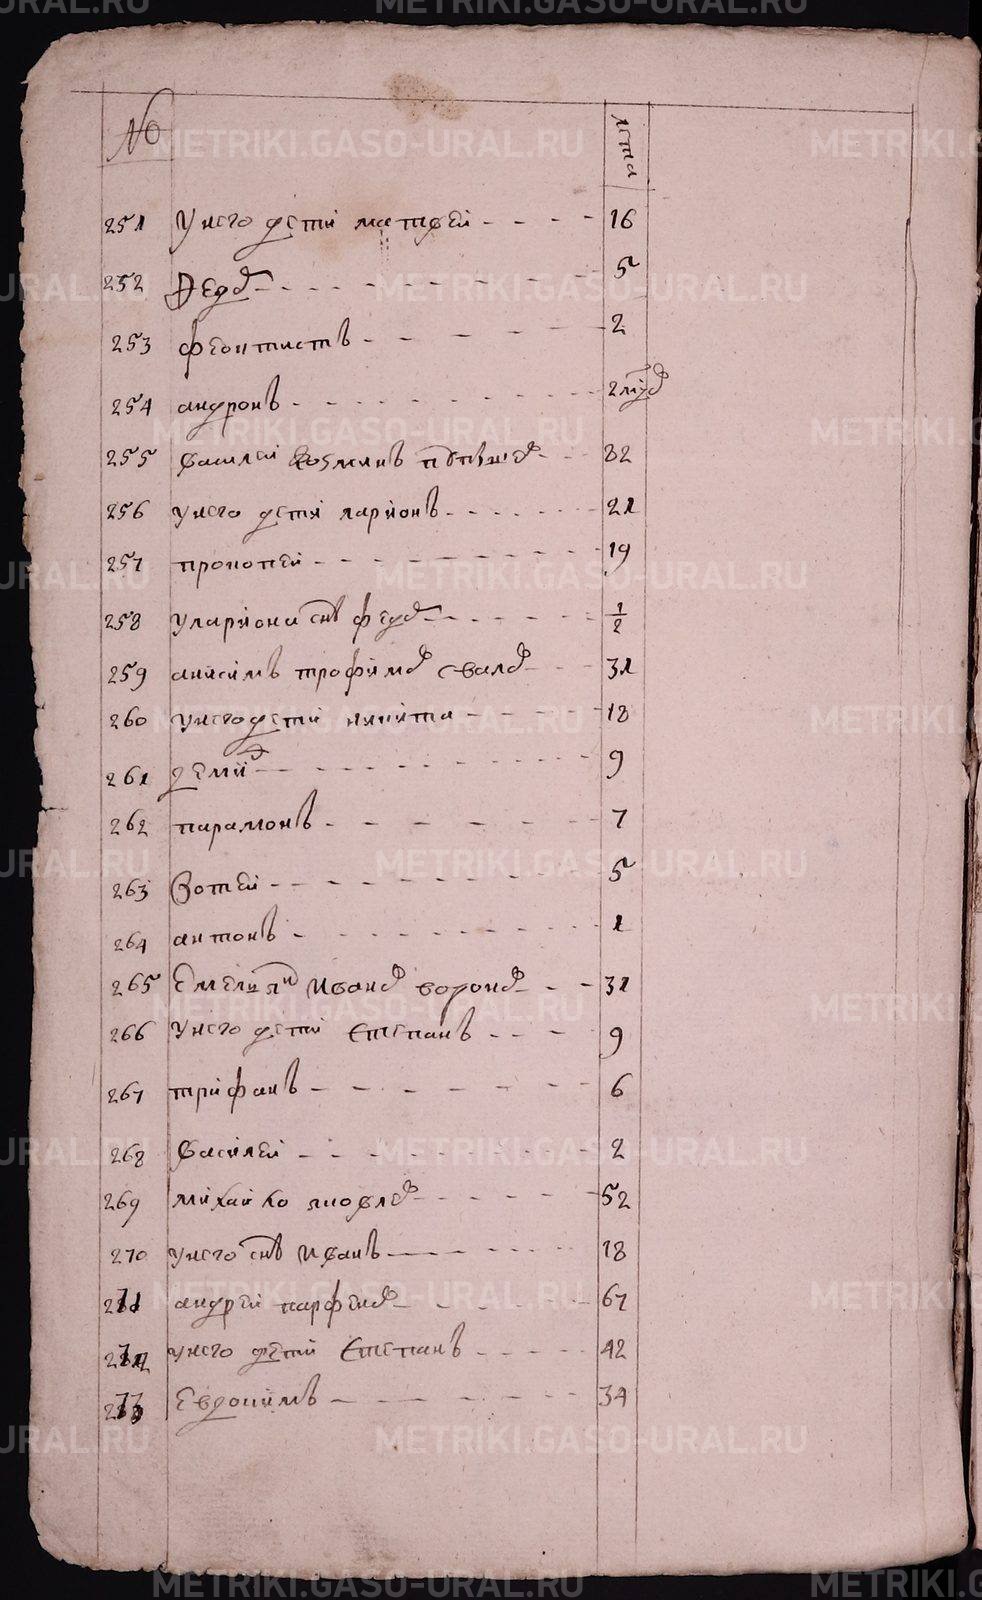 № лета
251 у него дети матвей - - - - 16
252 Федо - - - - 5
253 феонтистъ - - - - 2
254 андронъ - - - - 2
255 василей козминъ - - 32
256 у него дети ларионъ - - - - 21
257 прокопей - - - - 19
258 у лариона снъ федо - - - - 1/2
259 анисимъ трофимо - - 31
260 у него дети никита - - - - 18
261 деми - - - - 9
262 парамонъ - - - - 7
263 фотей - - - - 5
264 антонъ - - - - 1
265 Емелиян Ивано вороно - - 31
266 у него дети степанъ - - - 9
267 трифанъ - - - - 6
268 василей - - - - 2
269 михайко яковле - - - - 52
270 у него снъ Иванъ - - - - 18
271 андрей парфено - - - - 67
272 у него дети степанъ - - - - 42
273 Евдокимъ - - - - 34
METRIKI.GASO-URAL.RU